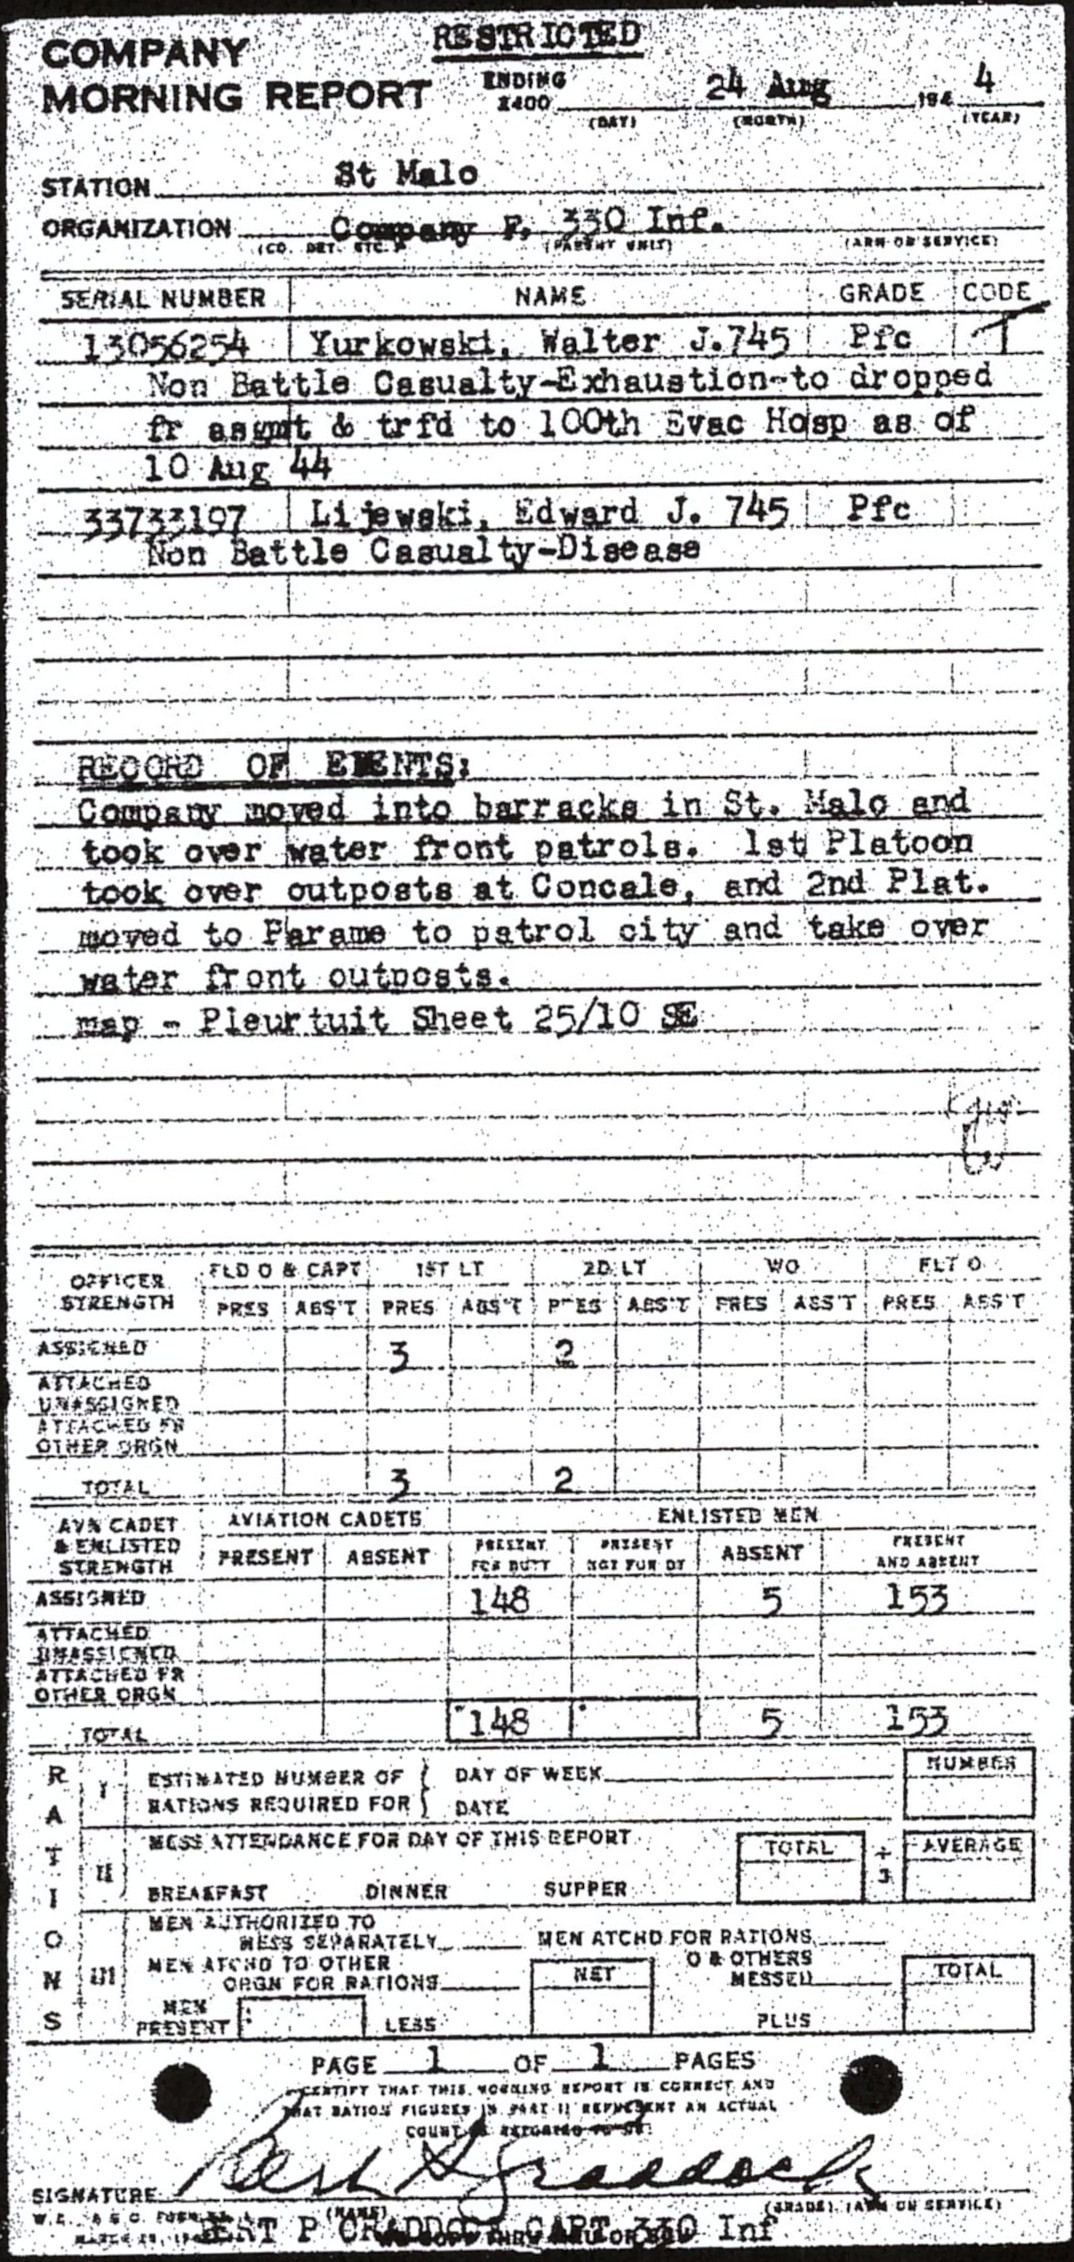 RESTRICTED
COMPANY
MORNING REPORT
ENDING
2400
24 Aug 194 4
(DAY) (MONTH) (YEAR)
STATION St Malo
ORGANIZATION Company F, 330 Inf.
(CO. DET. ETC.) (PARENT UNIT) (ARM OR SERVICE)
SERIAL NUMBER NAME GRADE CODE
13056254 Yurkowski, Walter J. 745 Pfc
Non Battle Casualty-Exhaustion-to dropped
fr asgmt & trfd to 100th Evac Hosp as of
10 Aug 44
33733197 Lijewski, Edward J. 745 Pfc
Non Battle Casualty-Disease
RECORD OF EVENTS:
Company moved into barracks in St. Malo and
took over water front patrols. 1st Platoon
took over outposts at Concale, and 2nd Plat.
moved to Parame to patrol city and take over
water front outposts.
map - Pleurtuit Sheet 25/10 SE
OFFICER STRENGTH FLD O & CAPT 1ST LT 2D LT WO FLT O
PRES ABS'T PRES ABS'T PRES ABS'T PRES ABS'T PRES ABS'T
ASSIGNED 3 2
ATTACHED
UNASSIGNED
ATTACHED FR
OTHER ORGN
TOTAL 3 2
AVN CADET & ENLISTED STRENGTH AVIATION CADETS ENLISTED MEN
PRESENT ABSENT PRESENT FOR DUTY PRESENT NOT FOR DY ABSENT PRESENT AND ABSENT
ASSIGNED 148 5 153
ATTACHED
UNASSIGNED
ATTACHED FR
OTHER ORGN
TOTAL 148 5 153
RATIONS
I ESTIMATED NUMBER OF DAY OF WEEK NUMBER
RATIONS REQUIRED FOR DATE
II MESS ATTENDANCE FOR DAY OF THIS REPORT TOTAL ÷ 3 AVERAGE
BREAKFAST DINNER SUPPER
III MEN AUTHORIZED TO
MESS SEPARATELY MEN ATCHD FOR RATIONS
MEN ATCHD TO OTHER O & OTHERS
ORGN FOR RATIONS NET MESSED TOTAL
MEN
PRESENT LESS PLUS
PAGE 1 OF 1 PAGES
CERTIFY THAT THIS MORNING REPORT IS CORRECT AND
THAT RATION FIGURES IN PART II REPRESENT AN ACTUAL
COUNT
SIGNATURE
(NAME) (GRADE) (ARM OR SERVICE)
CRADDOCK CAPT 330 Inf